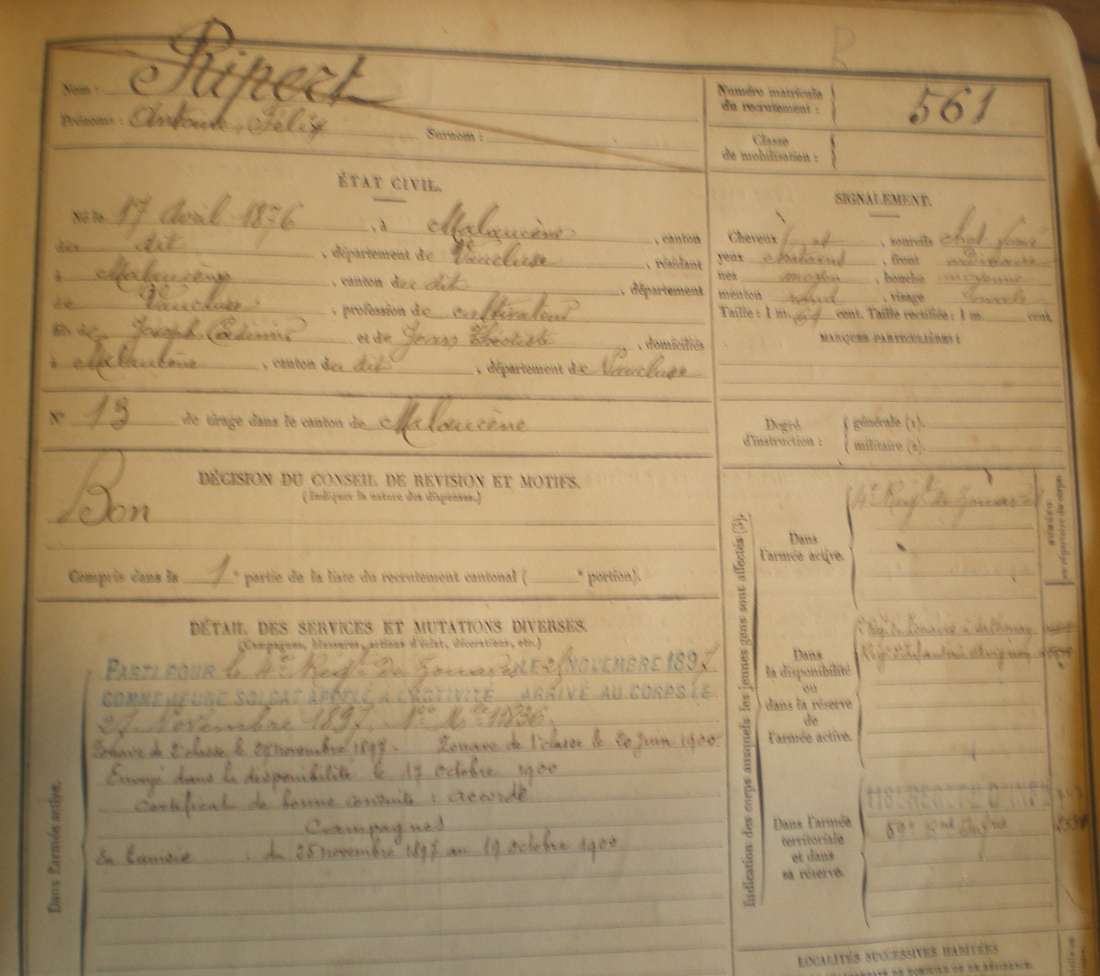 Nom : Ripert
Prénoms : Antoine, Félix Surnom :
Numéro matricule du recrutement : 561
Classe de mobilisation :
ÉTAT CIVIL.
Né le 17 Avril 1876, à Malaucène, canton
du dit, département de Vaucluse, résidant
à Malaucène, canton du dit, département
de Vaucluse, profession de cultivateur
fils de Joseph Casimir et de Jean Théotiste, domiciliés
à Malaucène, canton du dit, département de Vaucluse
N° 13 de tirage dans le canton de Malaucène
SIGNALEMENT.
Cheveux , sourcils
yeux , front
nez moyen, bouche moyenne
menton rond, visage
Taille : 1 m. cent. Taille rectifiée : 1 m. cent.
MARQUES PARTICULIÈRES :
Degré d'instruction : générale (1).
militaire (2).
DÉCISION DU CONSEIL DE REVISION ET MOTIFS.
(Indiquer la nature des dispenses.)
Bon
Compris dans la 1e partie de la liste du recrutement cantonal ( e portion).
DÉTAIL DES SERVICES ET MUTATIONS DIVERSES.
(Campagnes, blessures, actions d'éclat, décorations, etc.)
PARTI POUR le 4e Regt de Zouaves LE NOVEMBRE 1897
COMME JEUNE SOLDAT APPELÉ A L'ACTIVITÉ ARRIVÉ AU CORPS LE
27 Novembre 1897. No Mle 11836.
Zouave de 2e classe le 28 novembre 1897. Zouave de 1e classe le 20 Juin 1900
Envoyé dans la disponibilité le 17 Octobre 1900
Certificat de bonne conduite : accordé
Campagnes
En Tunisie : du 28 novembre 1897 au 17 octobre 1900
Dans l'armée active.
Indication des corps auxquels les jeunes gens sont affectés (3).
Dans l'armée active.
4e Regt de Zouaves
Dans la disponibilité ou dans la réserve de l'armée active.
Dans l'armée territoriale et dans sa réserve.
NUMÉRO au répertoire du corps.
LOCALITÉS SUCCESSIVES HABITÉES